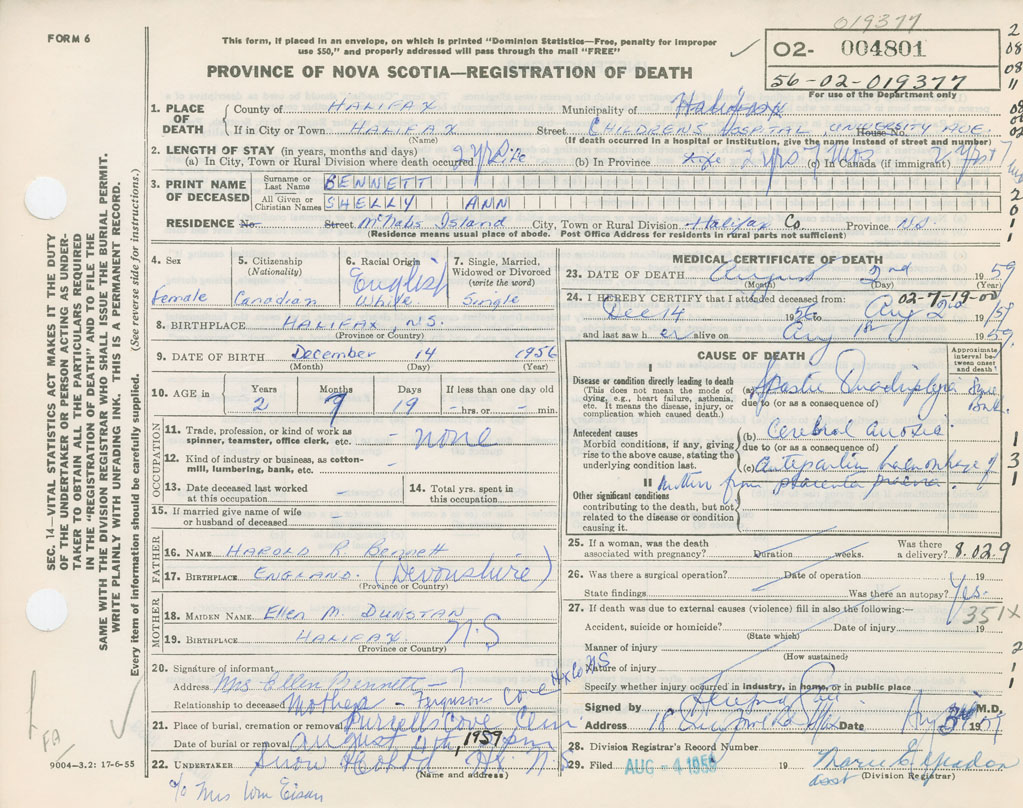 019377
FORM 6
This form, if placed in an envelope, on which is printed "Dominion Statistics—Free, penalty for improper
use $50," and properly addressed will pass through the mail "FREE"
02- 004801
56-02-019377
For use of the Department only
PROVINCE OF NOVA SCOTIA—REGISTRATION OF DEATH
1. PLACE OF DEATH County of HALIFAX Municipality of Halifax
If in City or Town HALIFAX Street CHILDREN'S HOSPITAL, UNIVERSITY AVE. House No.
(Name) (If death occurred in a hospital or institution, give the name instead of street and number)
2. LENGTH OF STAY (in years, months and days)
(a) In City, Town or Rural Division where death occurred 2 yrs 7 (b) In Province Life 2 yrs 7 mos (c) In Canada (if immigrant) 2 yrs 7
3. PRINT NAME OF DECEASED Surname or Last Name BENNETT
All Given or Christian Names SHELLY ANN
RESIDENCE No. Street McNabs Island City, Town or Rural Division Halifax Co. Province NS
(Residence means usual place of abode. Post Office Address for residents in rural parts not sufficient)
SEC. 14—VITAL STATISTICS ACT MAKES IT THE DUTY
OF THE UNDERTAKER OR PERSON ACTING AS UNDER-
TAKER TO OBTAIN ALL THE PARTICULARS REQUIRED
IN THE "REGISTRATION OF DEATH" AND TO FILE THE
SAME WITH THE DIVISION REGISTRAR WHO SHALL ISSUE THE BURIAL PERMIT.
WRITE PLAINLY WITH UNFADING INK. THIS IS A PERMANENT RECORD.
Every item of information should be carefully supplied. (See reverse side for instructions.)
4. Sex Female
5. Citizenship (Nationality) Canadian
6. Racial Origin English White
7. Single, Married, Widowed or Divorced (write the word) Single
8. BIRTHPLACE HALIFAX, N.S.
(Province or Country)
9. DATE OF BIRTH December 14 1956
(Month) (Day) (Year)
10. AGE in Years 2 Months 7 Days 19 If less than one day old - hrs. or - min.
OCCUPATION
11. Trade, profession, or kind of work as spinner, teamster, office clerk, etc. - none
12. Kind of industry or business, as cotton-mill, lumbering, bank, etc. -
13. Date deceased last worked at this occupation -
14. Total yrs. spent in this occupation
15. If married give name of wife or husband of deceased -
FATHER
16. NAME HAROLD R Bennett
17. BIRTHPLACE ENGLAND. (Devonshire)
(Province or Country)
MOTHER
18. MAIDEN NAME Ellen M. DUNSTAN
19. BIRTHPLACE HALIFAX N.S
(Province or Country)
20. Signature of informant
Address Mrs Ellen Bennett -
Relationship to deceased Mother - Ferguson Cove Hx Co NS
21. Place of burial, cremation or removal Purcells Cove Cem.
Date of burial or removal August 4th, 1959
22. UNDERTAKER Snow & Co Ltd Hx. N.S
(Name and address)
9004-3.2: 17-6-55
To Mrs Wm Eisan
MEDICAL CERTIFICATE OF DEATH
23. DATE OF DEATH August 2nd 1959
(Month) (Day) (Year)
02-7-19-00
24. I HEREBY CERTIFY that I attended deceased from:
Dec 14 1956 to Aug 2nd 1959
and last saw her alive on Aug 1st 1959.
CAUSE OF DEATH
Approximate interval between onset and death
I
Disease or condition directly leading to death
(This does not mean the mode of dying, e.g., heart failure, asthenia, etc. It means the disease, injury, or complication which caused death.)
(a) Spastic Quadriplegia Since Birth
due to (or as a consequence of)
Antecedent causes
Morbid conditions, if any, giving rise to the above cause, stating the underlying condition last.
(b) Cerebral anoxia
due to (or as a consequence of)
(c) Antepartum haemorrhage of
mother from placenta praevia.
II
Other significant conditions
contributing to the death, but not related to the disease or condition causing it.
25. If a woman, was the death associated with pregnancy? Duration weeks. Was there a delivery? 8.029
26. Was there a surgical operation? Date of operation 19
State findings Was there an autopsy? Yes.
351X
27. If death was due to external causes (violence) fill in also the following:—
Accident, suicide or homicide? Date of injury 19
(State which)
Manner of injury
(How sustained)
Nature of injury
Specify whether injury occurred in industry, in home, or in public place
Signed by M.D.
Address 18 Hfx Date Aug 3rd 1959
28. Division Registrar's Record Number
29. Filed AUG - 4 1959 19 Marie E.
(Division Registrar)